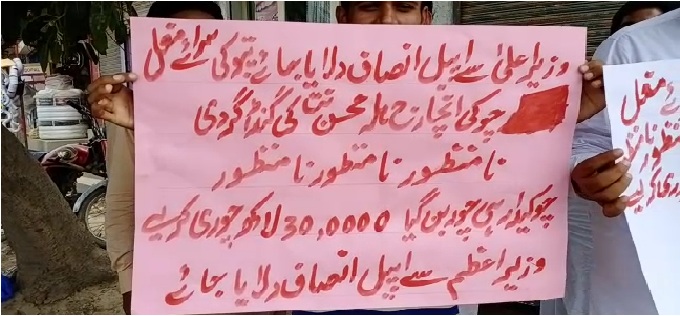 وزیراعلیٰ سے اپیل انصاف دلایا جائے پتوکی سرائے مغل
چوکی انچارج ہلہ محسن کی گنڈا گردی
نا منظور نا منظور نا منظور
چوکیدار ہی چور بن گیا 30,0000 لاکھ چوری کر لیے
وزیراعظم سے اپیل انصاف دلایا جائے
مغل